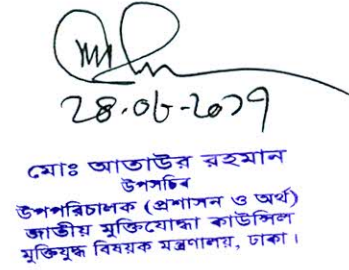 মোঃ আতাউর রহমান
উপসচিব
উপপরিচালক (প্রশাসন ও অর্থ)
জাতীয় মুক্তিযোদ্ধা কাউন্সিল
মুক্তিযুদ্ধ বিষয়ক মন্ত্রণালয়, ঢাকা।